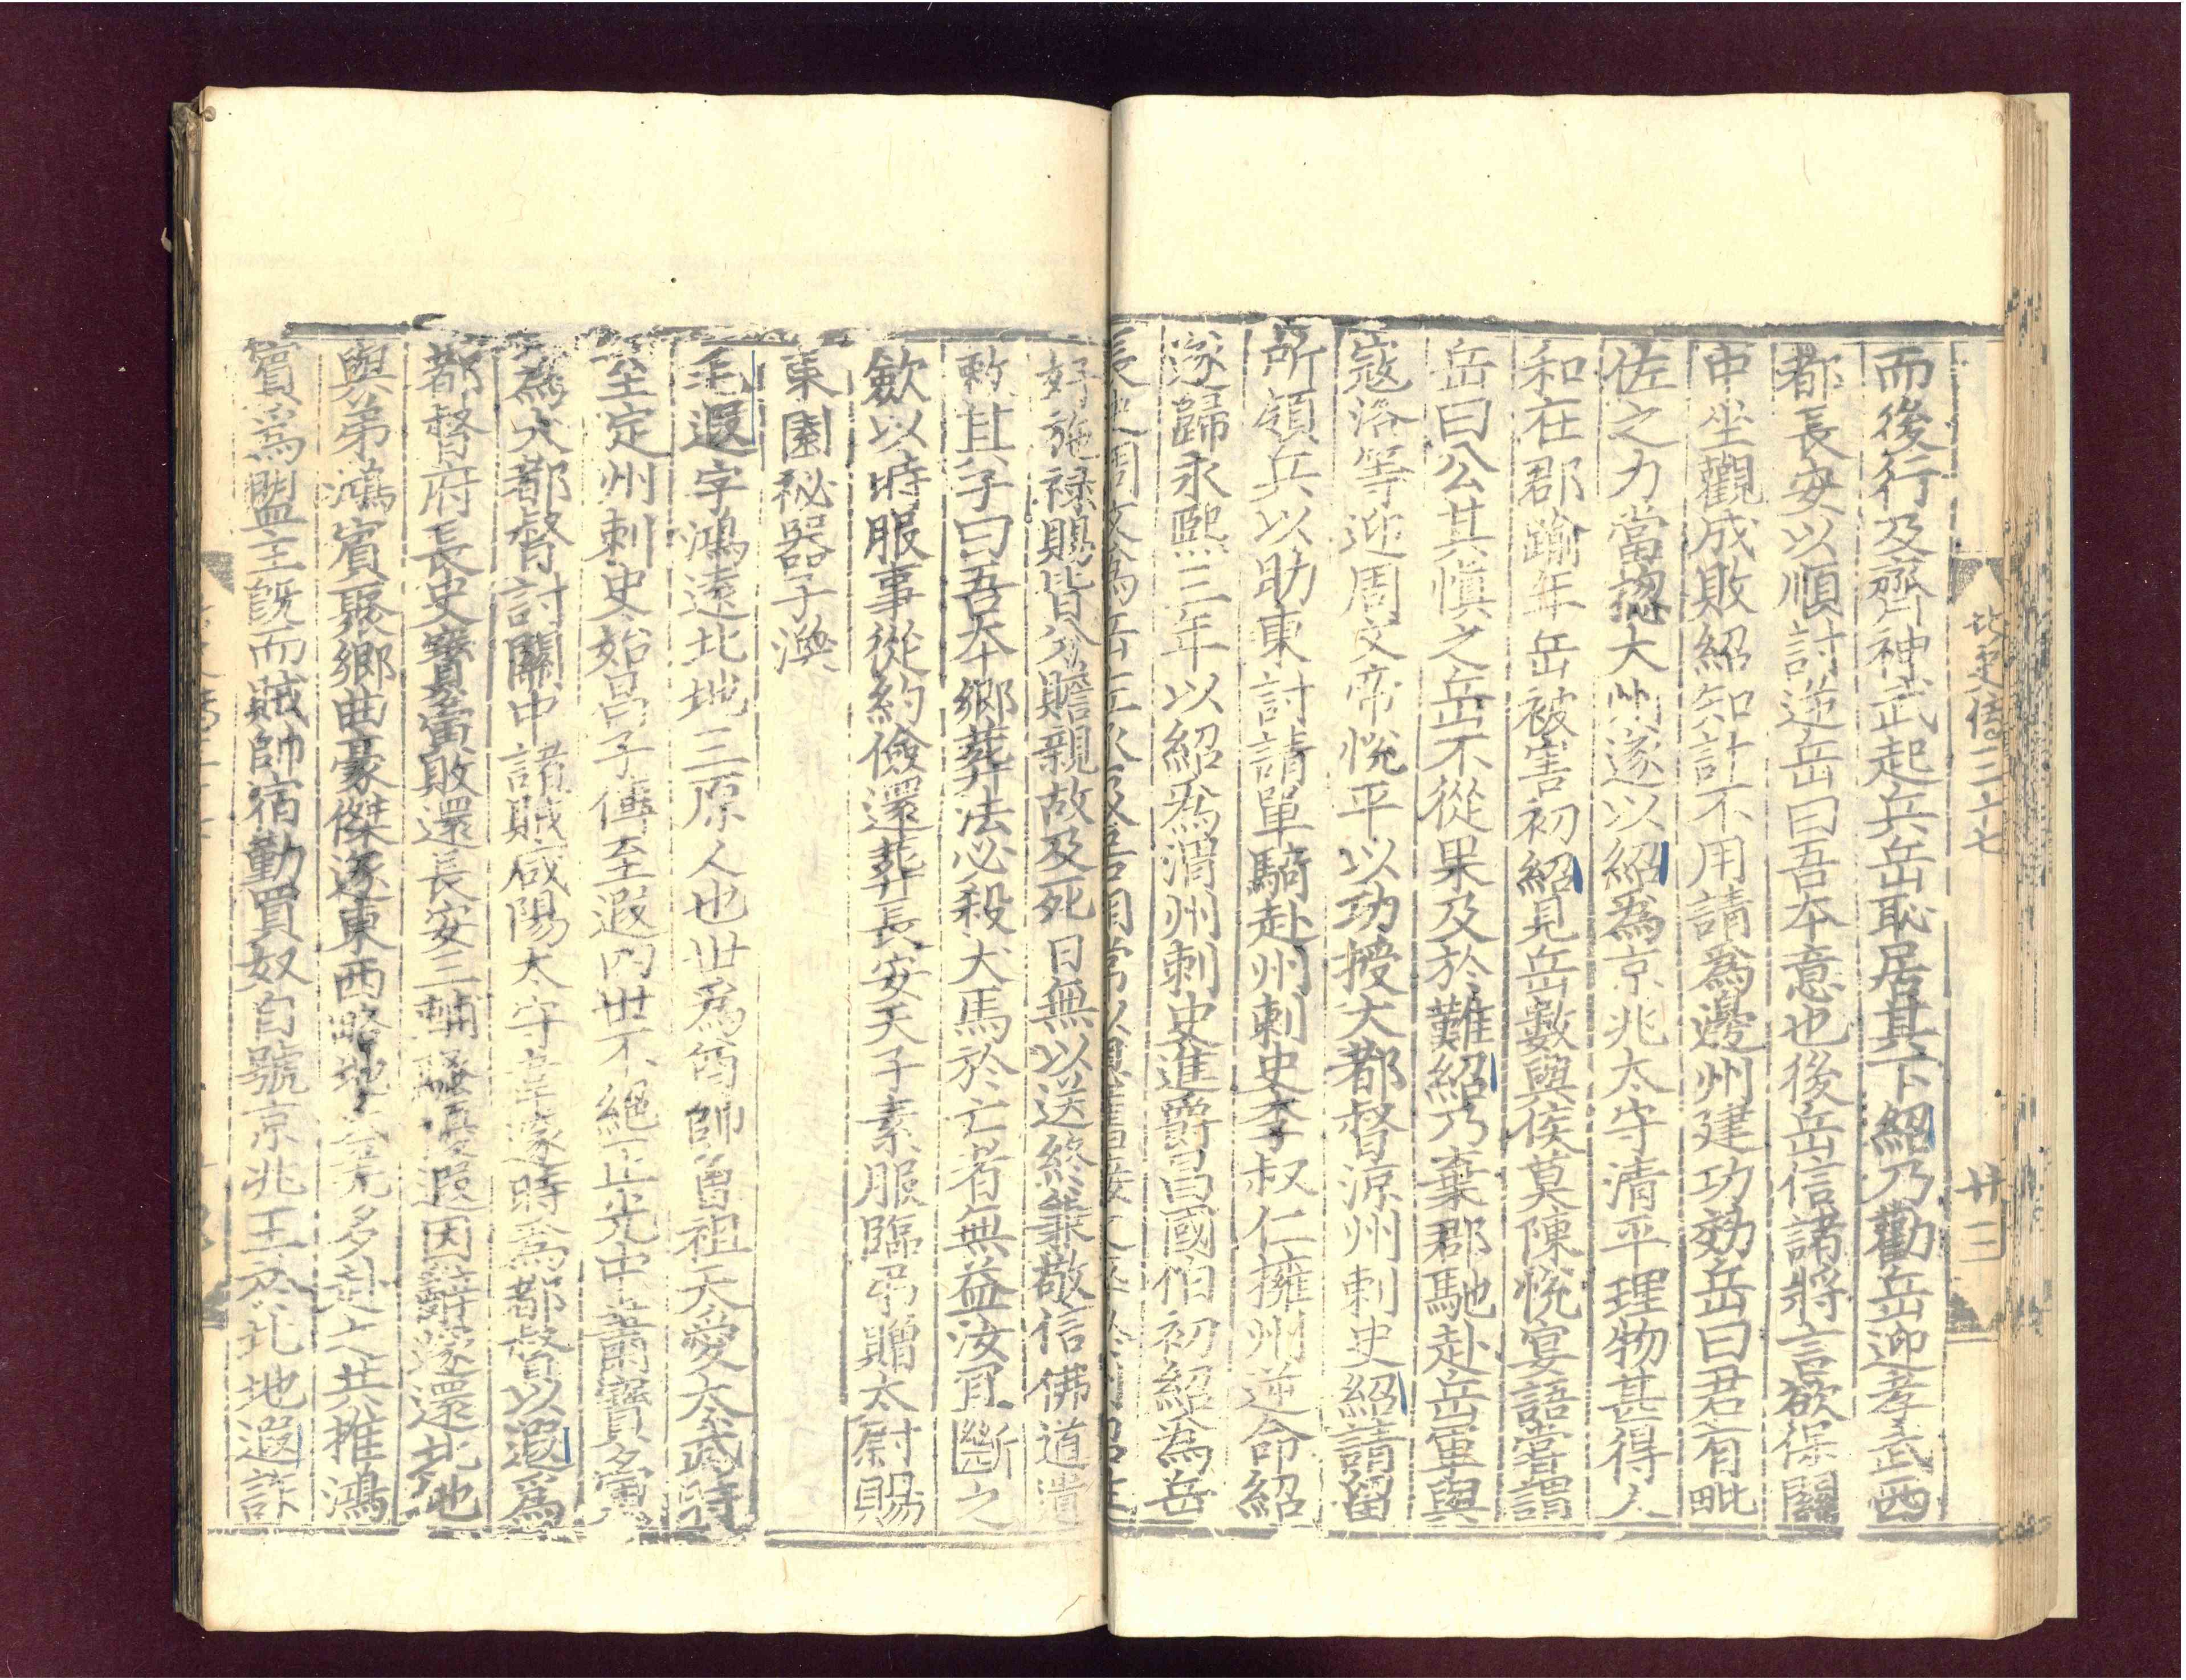 北史傳三十七
廿二
而後行及齊神武起兵岳恥居其下紹乃勸岳迎孝武西
都長安以順討逆岳曰吾本意也後岳信諸將言欲保關
中坐觀成敗紹知計不用請爲邊州建功効岳曰君有毗
佐之力當揔大州遂以紹爲京兆太守清平理物甚得人
和在郡踰年岳被害初紹見岳數與侯莫陳悅宴語嘗謂
岳曰公其慎之岳不從果及於難紹乃棄郡馳赴岳軍與
寇洛等迎周文帝悅平以功授大都督涼州刺史紹請留
所領兵以助東討請單騎赴州刺史李叔仁擁州逆命紹
遂歸永熙三年以紹爲渭州刺史進爵昌國伯初紹爲岳
長史周文爲岳左
好施祿賜皆分贍親故及死日無以送終兼敬信佛道遺
敕其子曰吾本鄉葬法必殺犬馬於亡者無益汝宜斷之
歛以時服事從約儉還葬長安天子素服臨弔贈太尉賜
東園秘器子渙
毛遐字鴻遠北地三原人也世爲酋帥曾祖天愛太武時
至定州刺史始昌子傳至遐四世不絕正光中蕭寶夤
爲大都督討關中諸賊咸陽太守韋遂時爲都督以遐爲
都督府長史寶夤敗還長安三輔騷擾遐因辭遂還北地
與弟鴻賓聚鄉曲豪傑遂東西略地羌多赴之共推鴻
賓爲盟主旣而賊帥宿勤買奴自號京兆王於北地遐詐